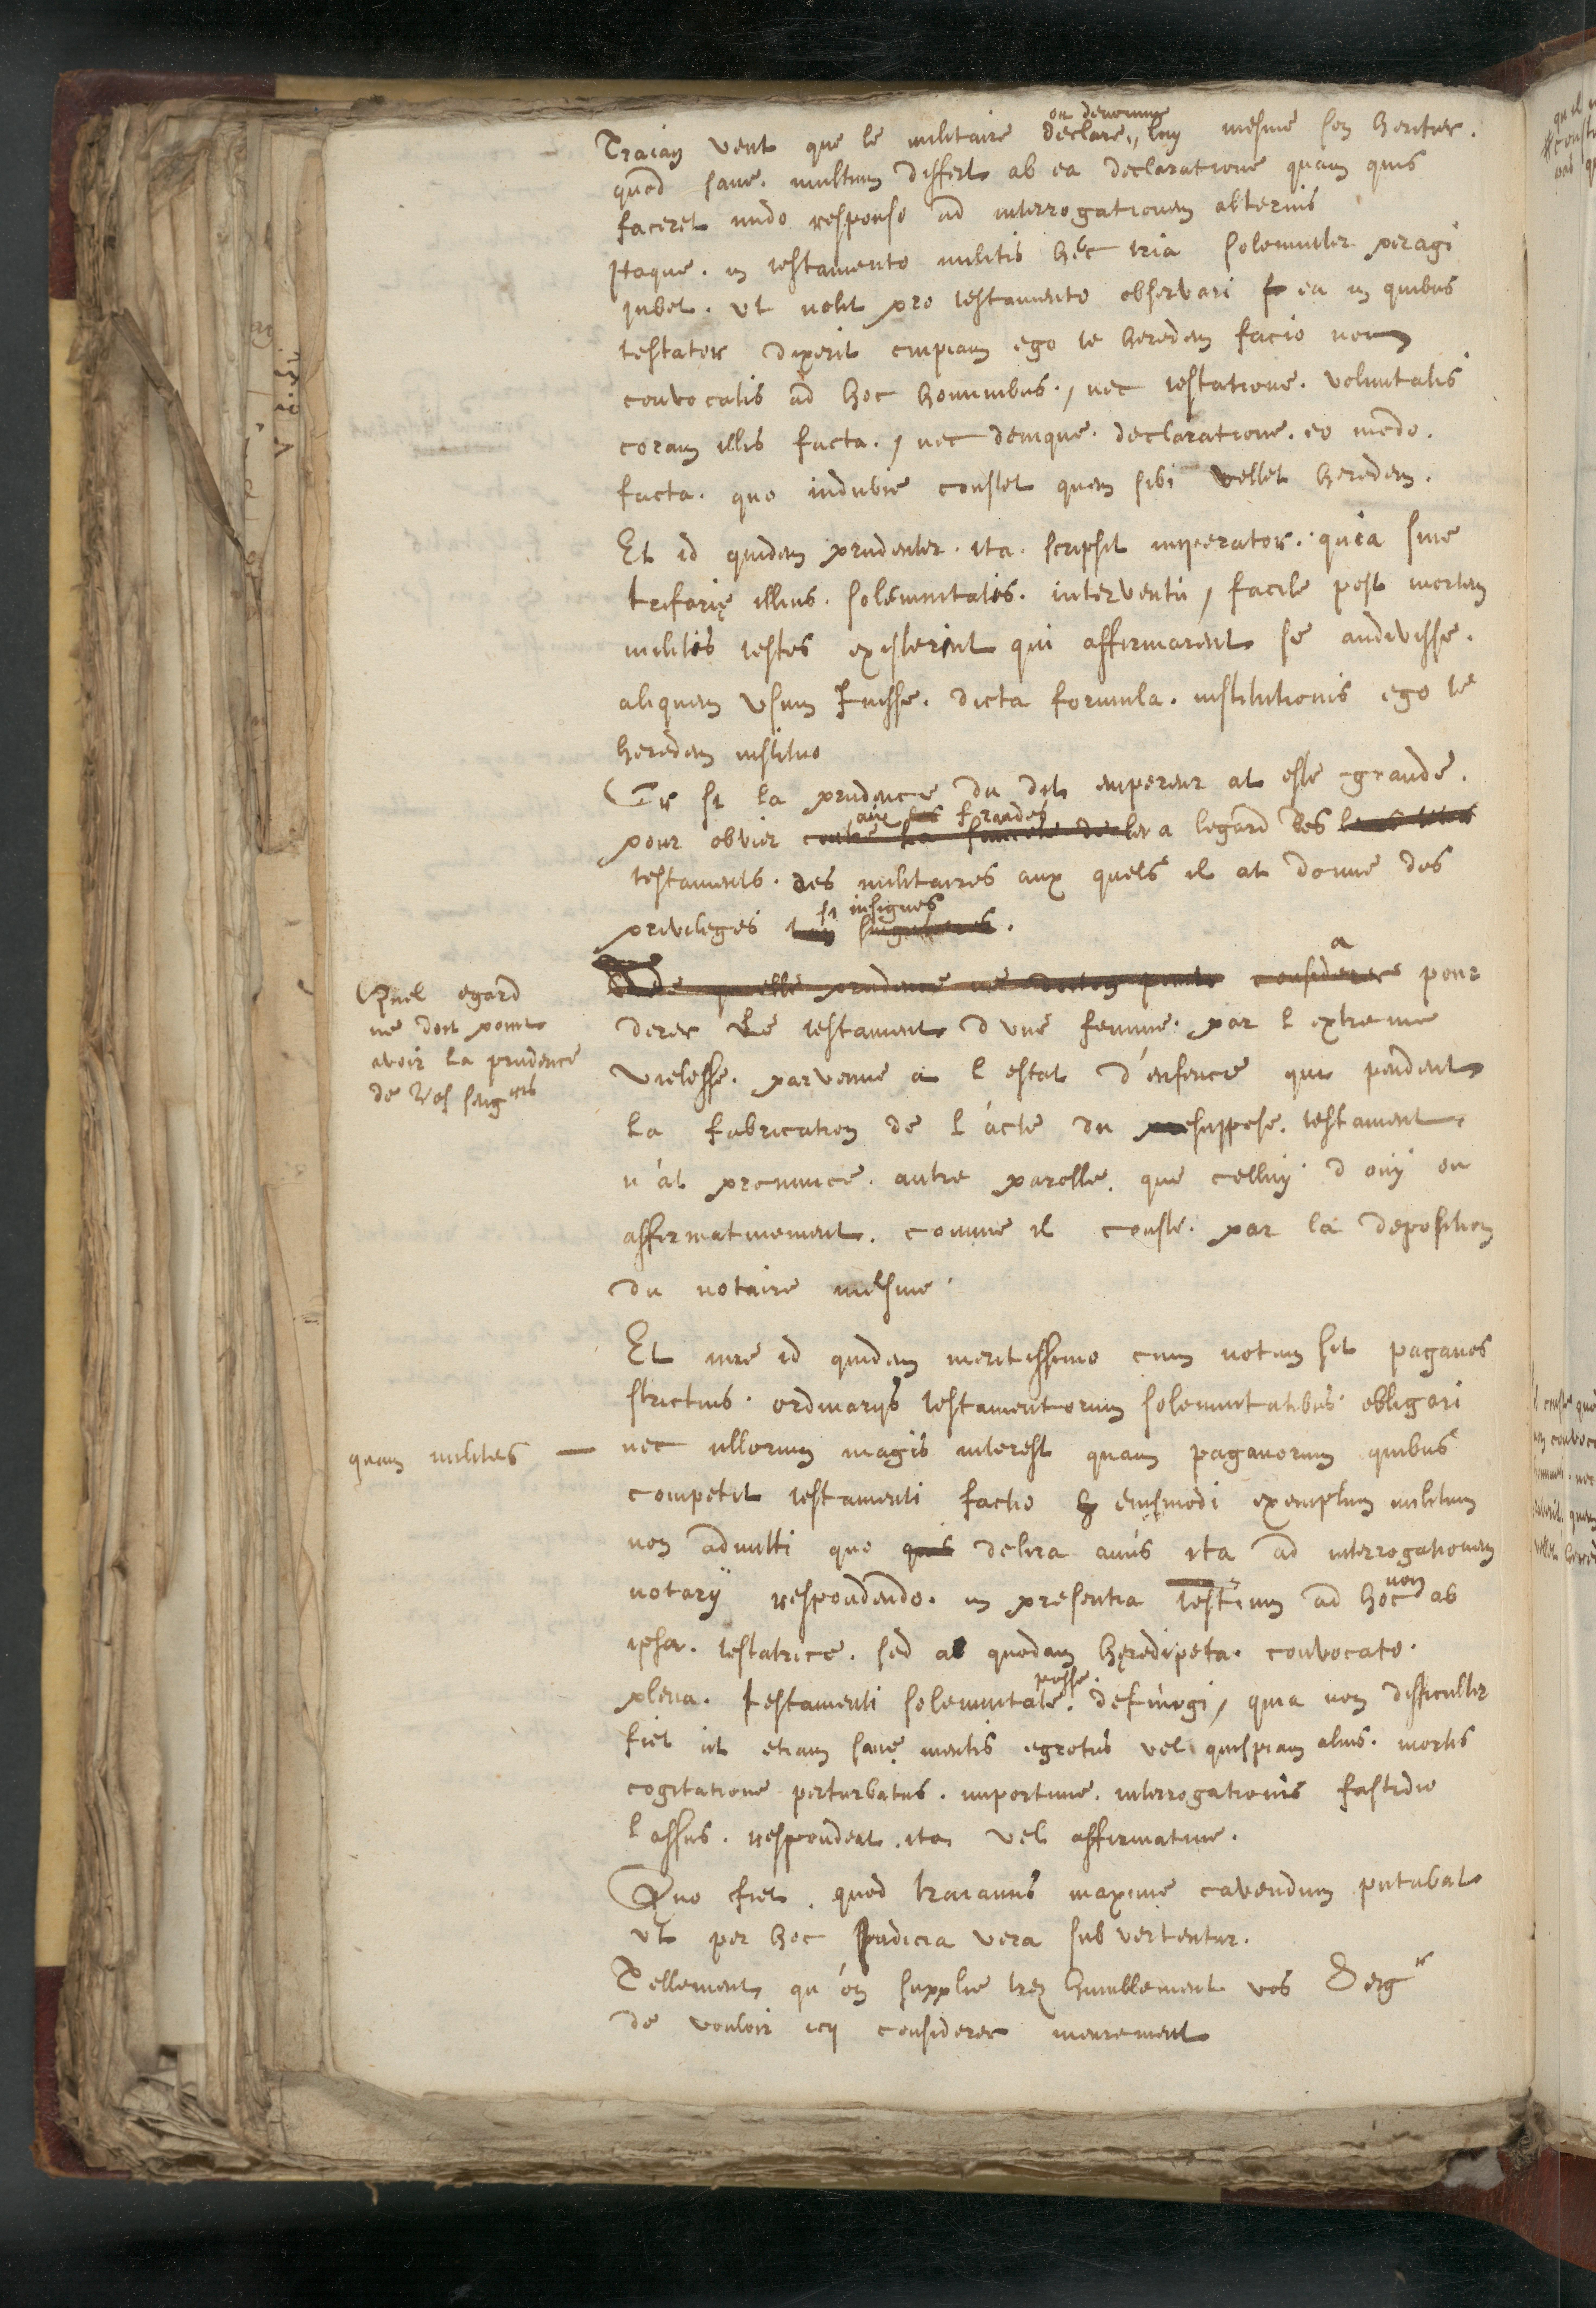 Traian veut que le militaire declare, ou denomme luy mesme son heritier.
quod sane. multum differt ab ea declaratione quam quis
faceret nudo responso ad interrogationem alterius
Itaque. in testamento militis hęc tria solemniter peragi
jubet. ut nolit pro testamento observari ea in quibus
testator dixerit cuipiam ego te heredem facio non
convocatis ad hoc hominibus., nec testatione. voluntatis
coram illis facta., nec denique. declaratione. eo modo.
facta. quo indubie constet quem sibi vellet heredem.
Et id quidem prudenter. ita. scripsit imperator. quia sine
trifarię illius. solemnitatis. interventu, facile post mortem
militis testes existerint qui affirmarent se audivisse.
aliquem usum fuisse. dicta formula. institutionis ego te
heredem instituo
Or si la prudence du dit empereur at esté grande.
pour obvier aux fraudes a legard des
testaments. des militaires aux quels il at donne des
privileges si insignes.
Quel egard
ne doit point
avoir la prudence
de Vos seigrs
a pour
derer Le testament d une femme. par l extreme
vielesse. parvenue a l estat d'enfence qui pendent
la fabrication de l'acte du suppose. testament
n'at prononce. autre parolle. que celluy d ouy ou
affirmativement. comme il conste. par la deposition
du notaire mesme.
Et iure id quidem meritissimo cum notum sit paganos
strictius. ordinarijs testamentorum solemnitatibus obligari
quam milites — nec ullorum magis interest quam paganorum quibus
competit testamenti factio eiusmodi exemplum militum
non admitti quo delira anus ita ad interrogationem
notarij respondendo. in presentia testium ad hoc non ab
ipsa. testatrice. sed a quodam hęredipeta. convocato.
plena. testamenti solemnitate. posse. defungi, quia non difficulter
fiet ut etiam sanę mentis egrotus vel quispiam alius. mortis
cogitatione perturbatus. importune. interrogationis fastidio
lassus. respondeat. ita vel affirmative.
Quo fiet. quod traianus maxime cavendum putabat
ut per hoc Judicia vera subvertentur.
Tellement qu'on supplie trez humblement vos Seigrs
de vouloir icy considerer meurement